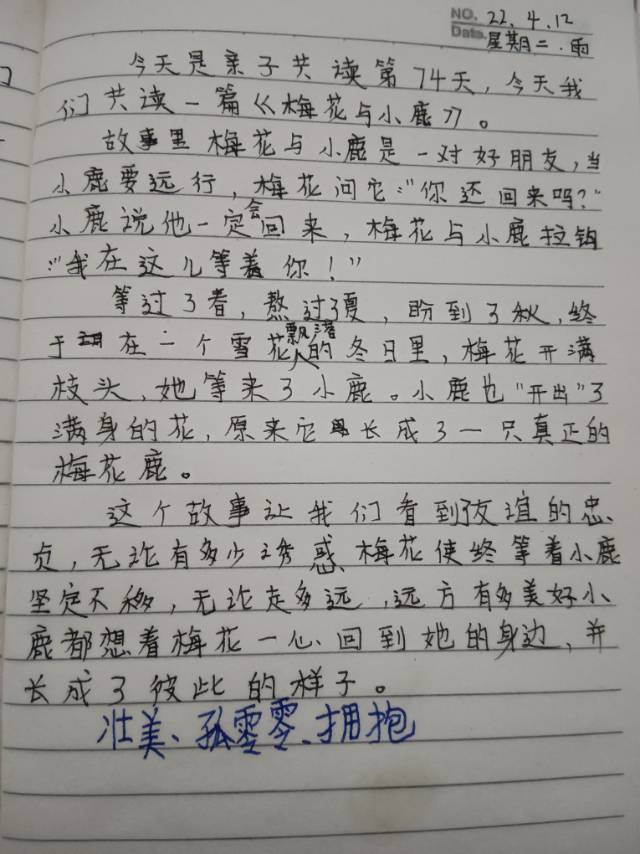 NO. 22.4.12
Data. 星期二.雨
今天是亲子共读第74天,今天我
们共读一篇《梅花与小鹿》。
故事里梅花与小鹿是一对好朋友,当
小鹿要远行,梅花问它:"你还回来吗?"
小鹿说他一定会回来,梅花与小鹿拉钩
:"我在这儿等着你!"
等过了春,熬过了夏,盼到了秋,终
于在一个雪花飘满的冬日里,梅花开满
枝头,她等来了小鹿。小鹿也"开出"了
满身的花,原来它长成了一只真正的
梅花鹿。
这个故事让我们看到了友谊的忠
贞,无论有多少诱惑梅花使终等着小鹿
坚定不移,无论走多远,远方有多美好小
鹿都想着梅花一心回到她的身边,并
长成了彼此的样子。
壮美、孤零零、拥抱